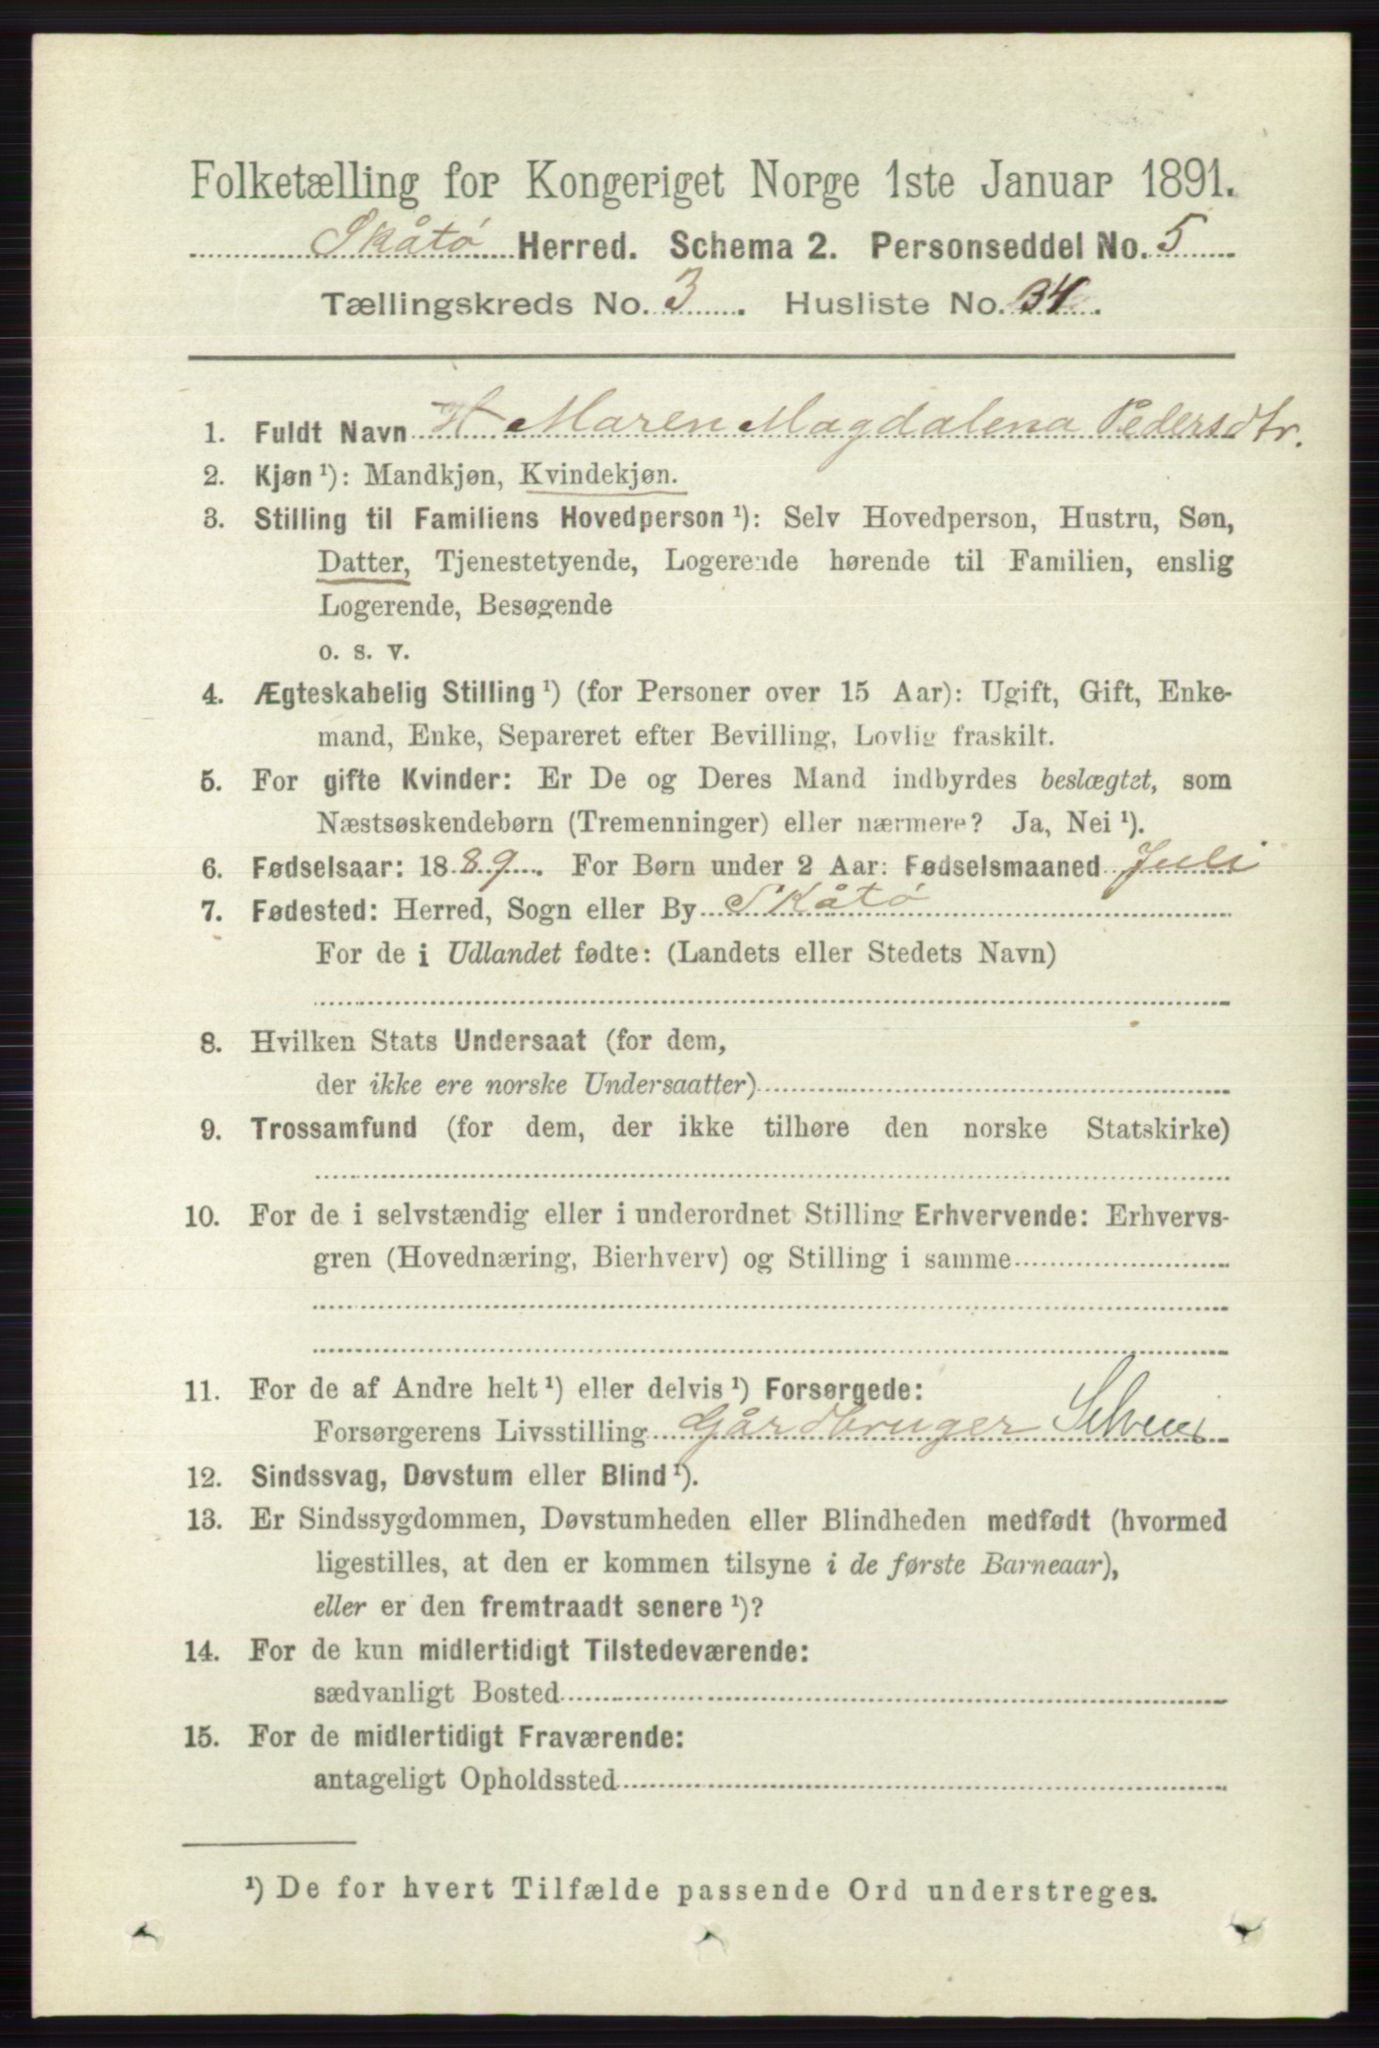 Folketælling for Kongeriget Norge 1ste Januar 1891.
Skåtø Herred. Schema 2. Personseddel No. 5
Tællingskreds No. 3. Husliste No. 34.
1. Fuldt Navn Maren Magdalena Pedersdtr.
2. Kjøn ¹): Mandkjøn, Kvindekjøn.
3. Stilling til Familiens Hovedperson ¹): Selv Hovedperson, Hustru, Søn,
Datter, Tjenestetyende, Logerende hørende til Familien, enslig
Logerende, Besøgende
o. s. v.
4. Ægteskabelig Stilling ¹) (for Personer over 15 Aar): Ugift, Gift, Enke-
mand, Enke, Separeret efter Bevilling, Lovlig fraskilt.
5. For gifte Kvinder: Er De og Deres Mand indbyrdes beslægtet, som
Næstsøskendebørn (Tremenninger) eller nærmere? Ja, Nei ¹).
6. Fødselsaar: 1889. For Børn under 2 Aar: Fødselsmaaned Juli
7. Fødested: Herred, Sogn eller By Skåtø
For de i Udlandet fødte: (Landets eller Stedets Navn)
8. Hvilken Stats Undersaat (for dem,
der ikke ere norske Undersaatter)
9. Trossamfund (for dem, der ikke tilhøre den norske Statskirke)
10. For de i selvstændig eller i underordnet Stilling Erhvervende: Erhvervs-
gren (Hovednæring, Bierhverv) og Stilling i samme
11. For de af Andre helt ¹) eller delvis ¹) Forsørgede:
Forsørgerens Livsstilling Gårdbruger Selveier
12. Sindssvag, Døvstum eller Blind ¹).
13. Er Sindssygdommen, Døvstumheden eller Blindheden medfødt (hvormed
ligestilles, at den er kommen tilsyne i de første Barneaar),
eller er den fremtraadt senere ¹)?
14. For de kun midlertidigt Tilstedeværende:
sædvanligt Bosted
15. For de midlertidigt Fraværende:
antageligt Opholdssted
¹) De for hvert Tilfælde passende Ord understreges.